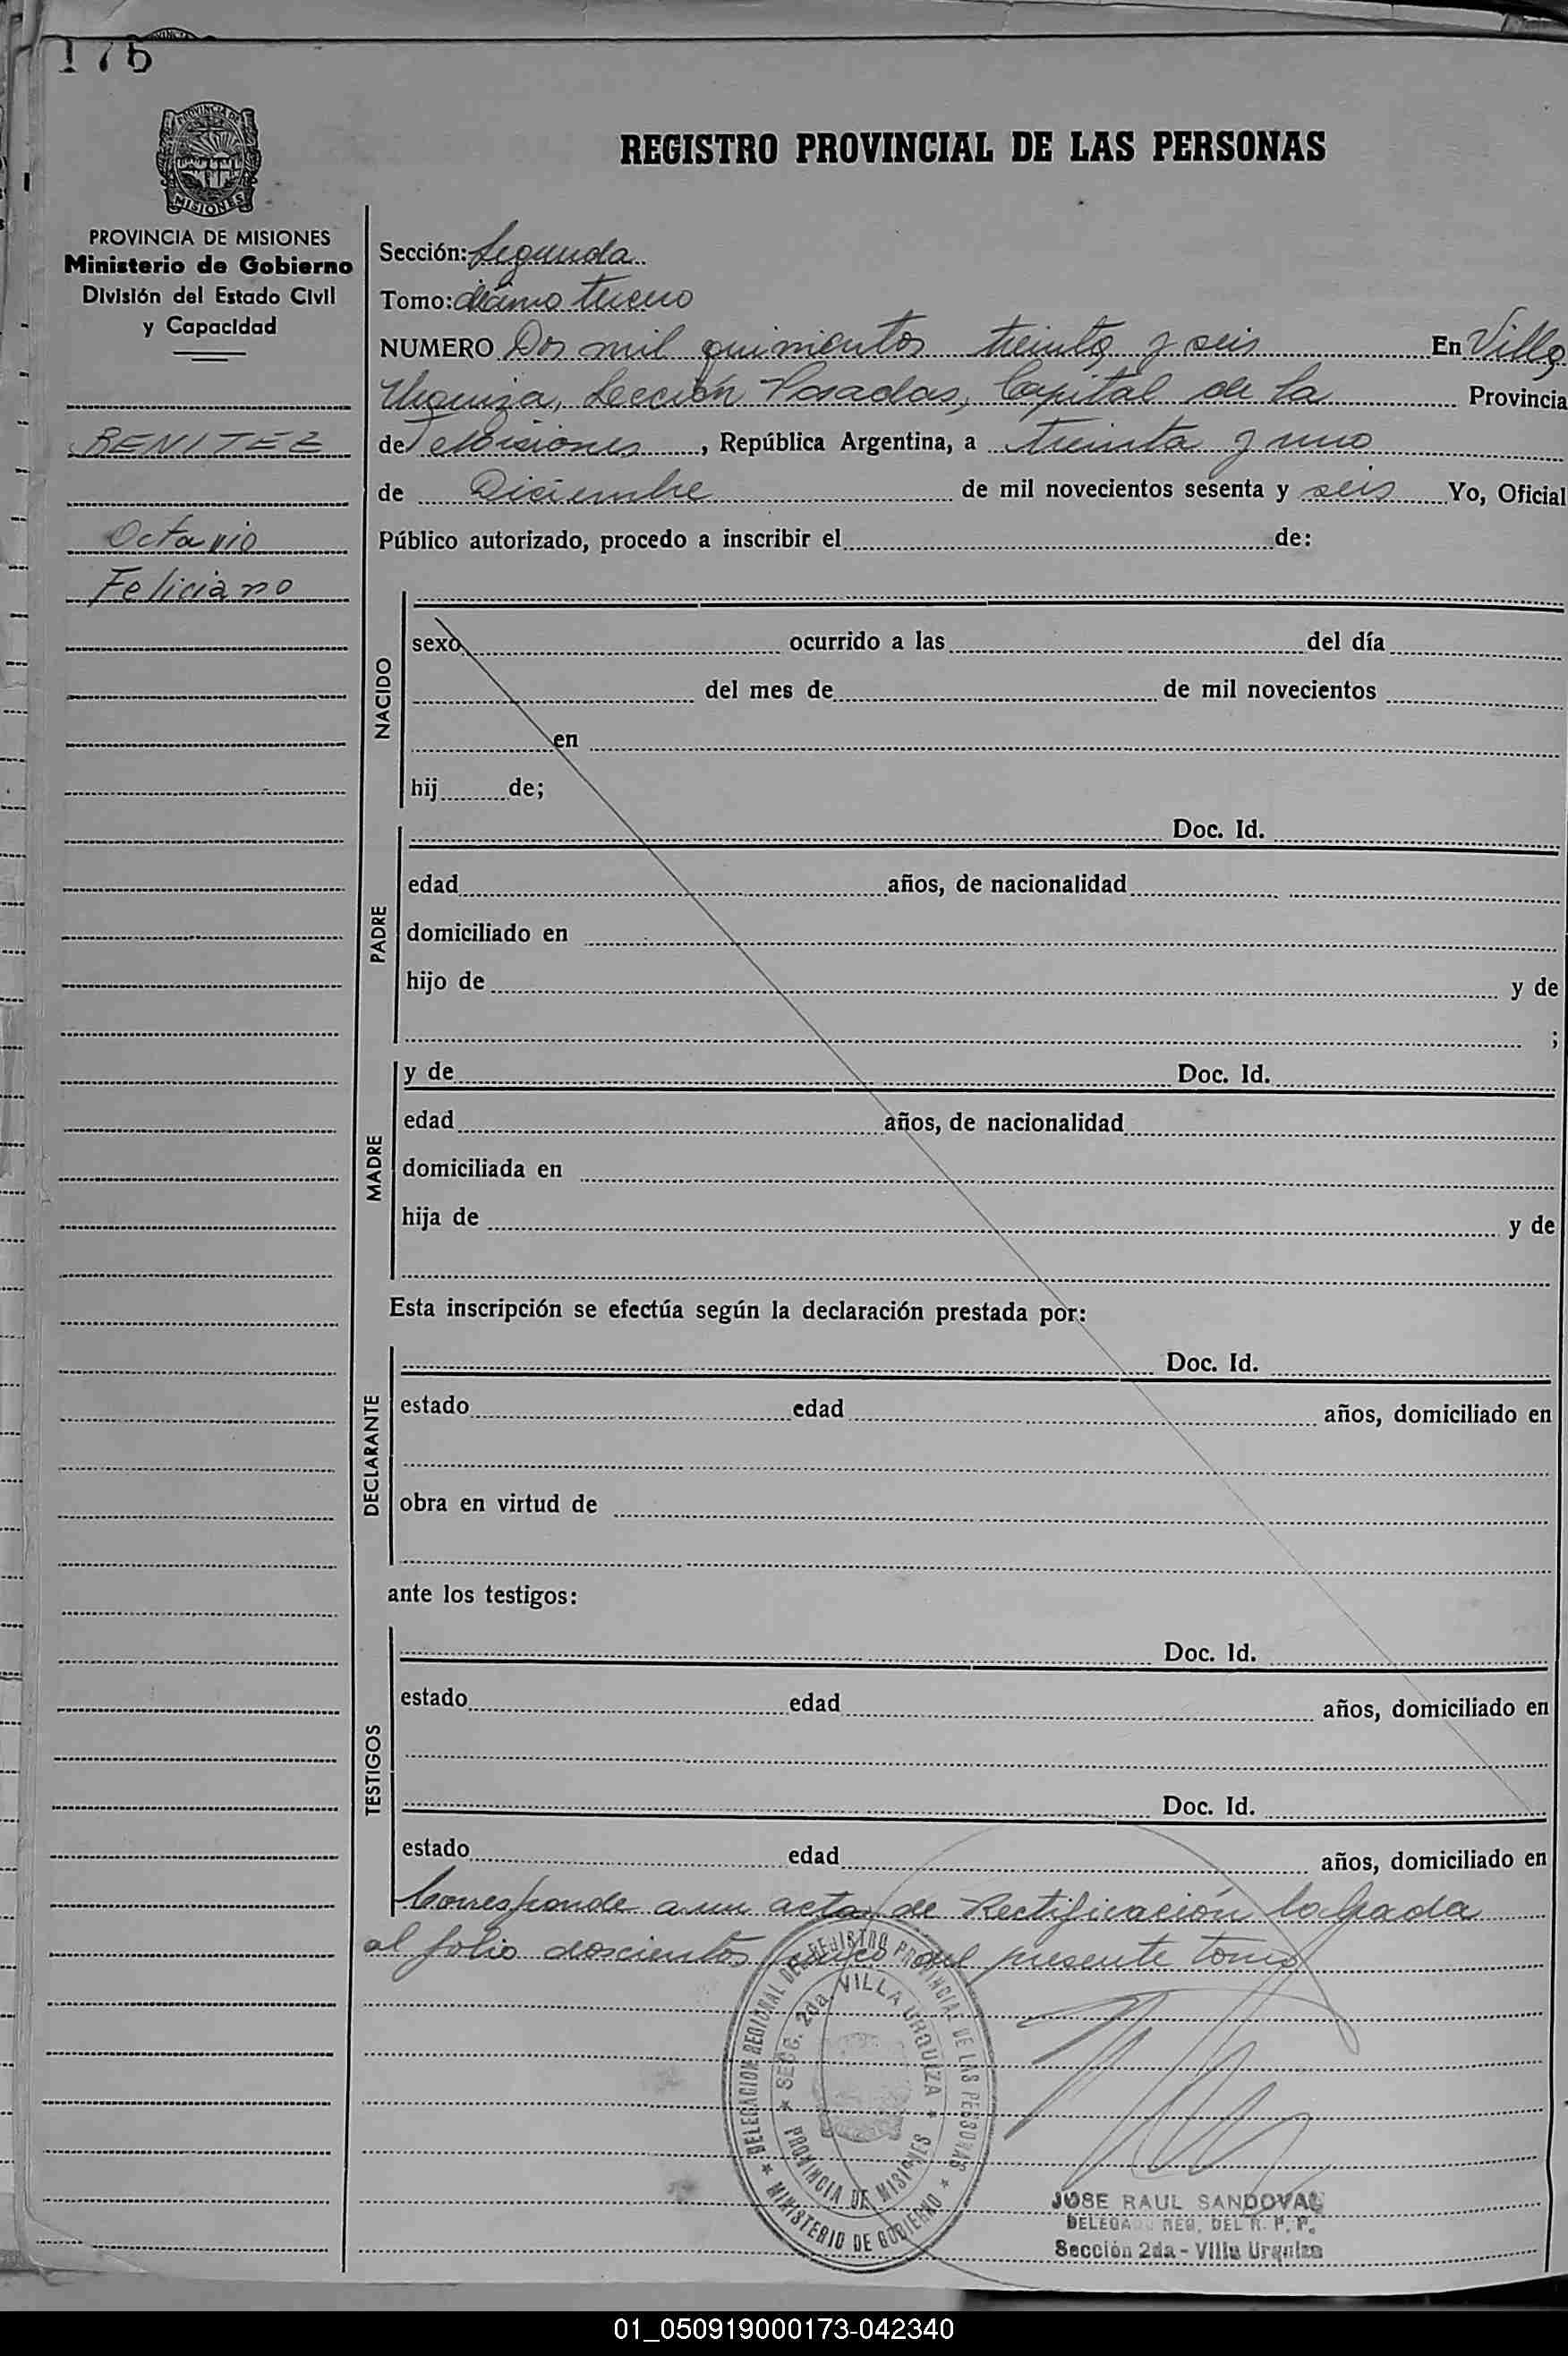 176
MISIONES
REGISTRO PROVINCIAL DE LAS PERSONAS
PROVINCIA DE MISIONES
Ministerio de Gobierno
División del Estado Civil
y Capacidad
BENITEZ
Octavio
Feliciano
Sección: Segunda
Tomo: décimo tercero
NUMERO Dos mil quinientos treinta y seis En Villa
Urquiza, Sección Posadas, Capital de la Provincia
de Misiones, República Argentina, a treinta y uno
de Diciembre de mil novecientos sesenta y seis Yo, Oficial
Público autorizado, procedo a inscribir el de:
NACIDO
sexo ocurrido a las del día
del mes de de mil novecientos
en
hij de;
PADRE
Doc. Id.
edad años, de nacionalidad
domiciliado en
hijo de y de
;
MADRE
y de Doc. Id.
edad años, de nacionalidad
domiciliada en
hija de y de
Esta inscripción se efectúa según la declaración prestada por:
DECLARANTE
Doc. Id.
estado edad años, domiciliado en
obra en virtud de
ante los testigos:
TESTIGOS
Doc. Id.
estado edad años, domiciliado en
Doc. Id.
estado edad años, domiciliado en
Corresponde a un acta de Rectificación labrada
al folio doscientos cinco del presente tomo
DELEGACION REGIONAL DEL REGISTRO PROVINCIAL DE LAS PERSONAS
* MINISTERIO DE GOBIERNO *
* SECC. 2da. VILLA URQUIZA *
PROVINCIA DE MISIONES
JOSE RAUL SANDOVAL
DELEGADO REG. DEL R. P. P.
Sección 2da - Villa Urquiza
01_050919000173-042340